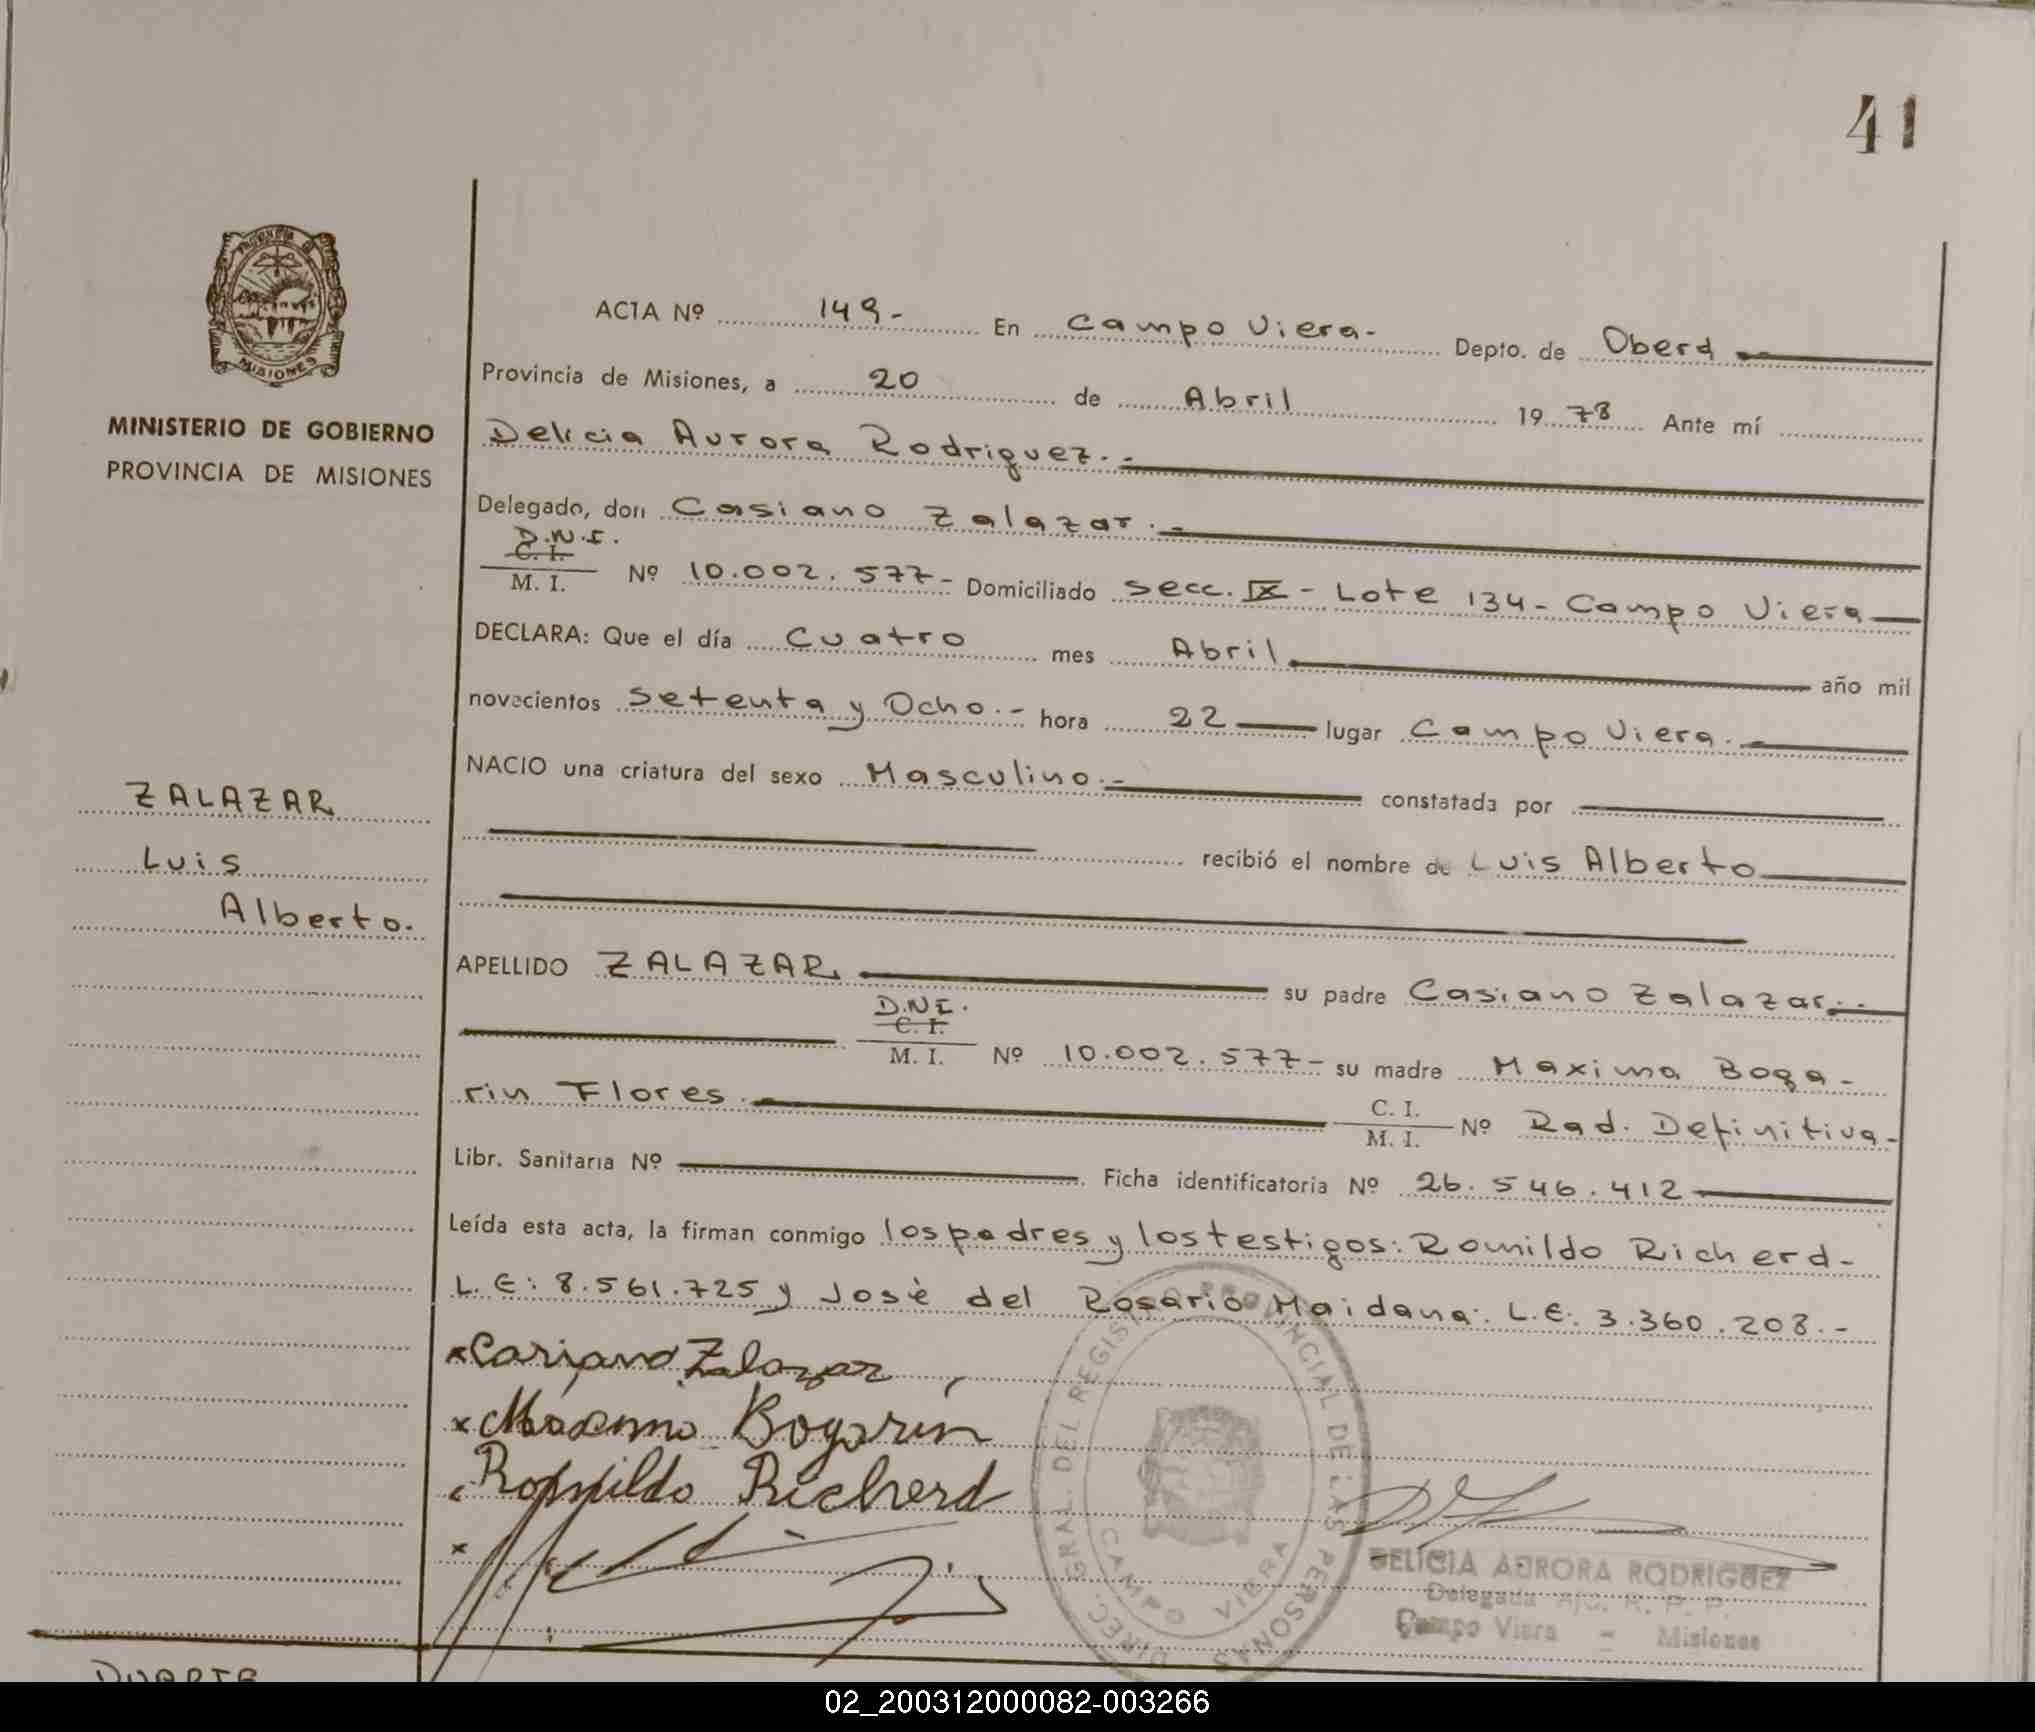 41
PROVINCIA DE
MISIONES
MINISTERIO DE GOBIERNO
PROVINCIA DE MISIONES
ZALAZAR
Luis
Alberto.
ACTA Nº 149- En Campo Viera- Depto. de Oberá
Provincia de Misiones, a 20 de Abril 1978 Ante mí
Delicia Aurora Rodriguez.-
Delegado, don Casiano Zalazar.-
D.N.I.
C. I.
M. I. Nº 10.002.577- Domiciliado Secc. IX - Lote 134- Campo Viera
DECLARA: Que el día Cuatro mes Abril año mil
novecientos Setenta y Ocho.- hora 22 lugar Campo Viera.-
NACIO una criatura del sexo Masculino.- constatada por
recibió el nombre de Luis Alberto
APELLIDO ZALAZAR su padre Casiano Zalazar.-
D.N.I.
C. I.
M. I. Nº 10.002.577- su madre Maxima Boga-
rin Flores.- C. I.
M. I. Nº Rad. Definitiva-
Libr. Sanitaria Nº Ficha identificatoria Nº 26.546.412
Leída esta acta, la firman conmigo los padres y los testigos: Romildo Richerd-
L.E: 8.561.725 y Josè del Rosario Maidana: L.E: 3.360.208.-
x Casiano Zalazar
x Maxima Bogarin
Romildo Richerd
x
DIREC. GRAL. DEL REGISTRO PROVINCIAL DE LAS PERSONAS
CAMPO VIERA
DELICIA AURORA RODRIGUEZ
Delegada R. P. P.
Campo Viera - Misiones
DUARTE
02_200312000082-003266